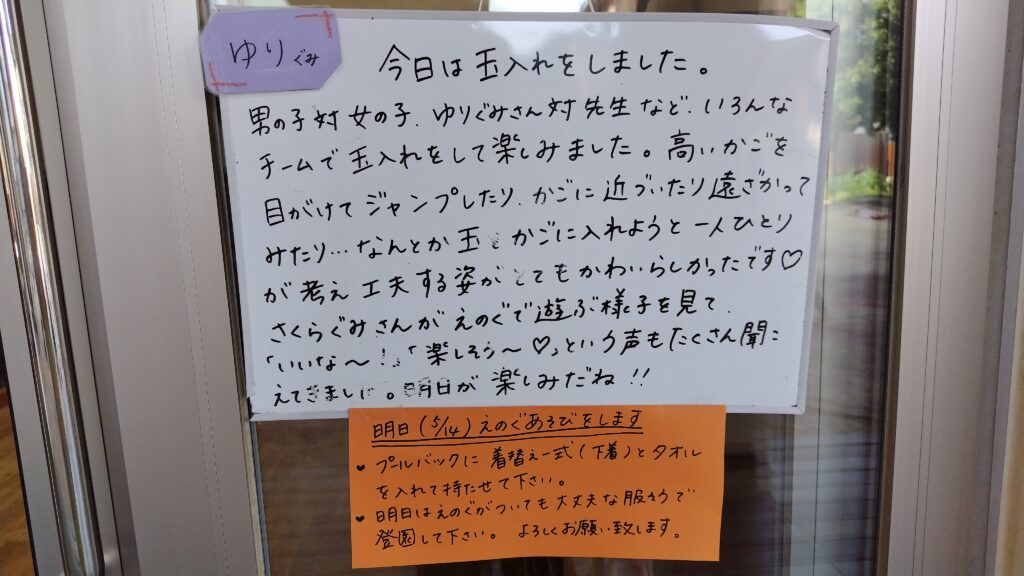 ゆりぐみ
今日は玉入れをしました。
男の子対女の子、ゆりぐみさん対先生など、いろんな
チームで玉入れをして楽しみました。高いかごを
目がけてジャンプしたり、かごに近づいたり遠ざかって
みたり…なんとか玉をかごに入れようと一人ひとり
が考え工夫する姿がとてもかわいらしかったです♡
さくらぐみさんがえのぐで遊ぶ様子を見て、
「いいな～!」「楽しそう～♡」という声もたくさん聞こ
えてきました。明日が楽しみだね!!
明日(5/14)えのぐあそびをします
♥プールバックに着替え一式(下着)とタオル
を入れて持たせて下さい。
♥明日はえのぐがついても大丈夫な服そうで
登園して下さい。よろしくお願い致します。